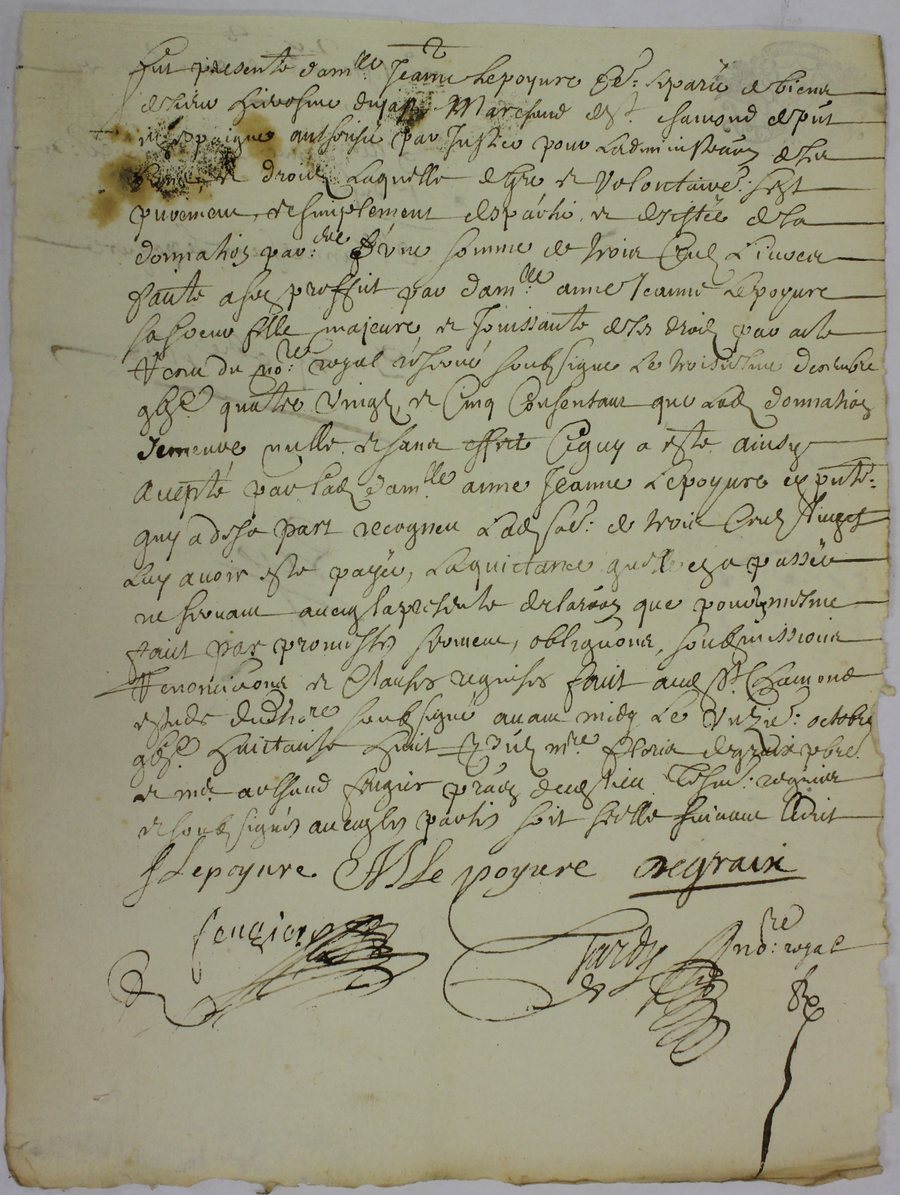 Fut presente dam.lle Jeanne Lepoyure fe.e separée de biens
de sieur hierosme dujast Marchand de S.t chamond depūt
en espaigne authorisée par Justice pour Ladministraōn de ses
biens et droits Laquelle de gre et volontairem.t sest
purement, et simplement despartie et desistée de la
donnation par elle d'une somme de trois Cent Livres
faute a son proffict par dam.lle anne Jeanne Lepoyure
sa soeur fille majeure et Jouissante de ses droits par acte
receu du no:re royal reserué soubsigne Le troisiesme decembre
gbjc quatre vingt et Cinq Consentant que Lad donnation
demeure nulle et sans effect Ce quy a este ainsy
accepté par Lad dam.lle anne Jeanne Lepoyure cy pūte
quy a de sa part recogneu Lad so.e de trois Cent Liures
Luy avoir este payée, La quictance quelle en a passée
ne seruant aueq la presente declaraōn que pour mesme
fait par promesses serment, obligaōns, soubmissions
Renonciaōns et Clauses requises fait aud S.t Chamond
estude dud no.re soubsigné auant midy Le unzie: octobre
gbjc huictante huit p̄nts m.re degraix p̄bre
et m.e arthaud fougier de ce lieu Tesm: requis
et soubsignés aueq les parties soit scelle suiuant Ledict
J Lepoyure AJ Lepoyure degraix
fougier Tardy no:re royal